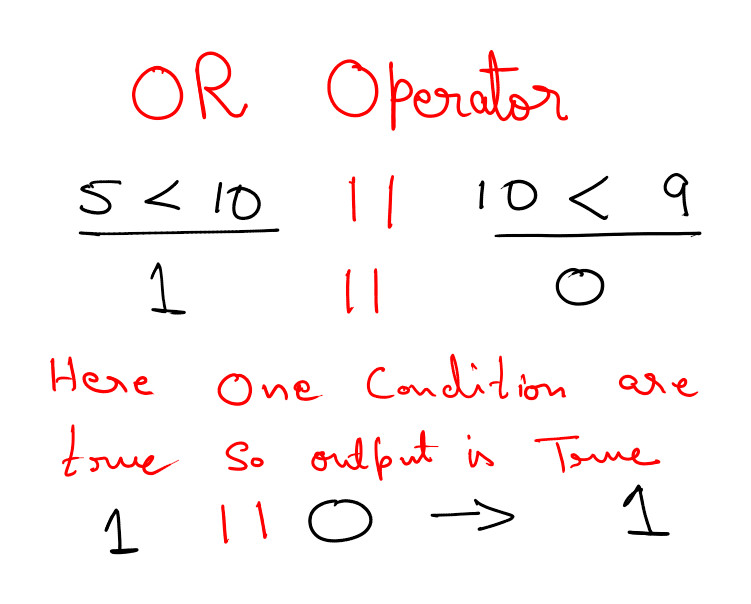 OR Operator
5 < 10 || 10 < 9
1 || 0
Here One Condition are
true So output is True
1 || 0 → 1